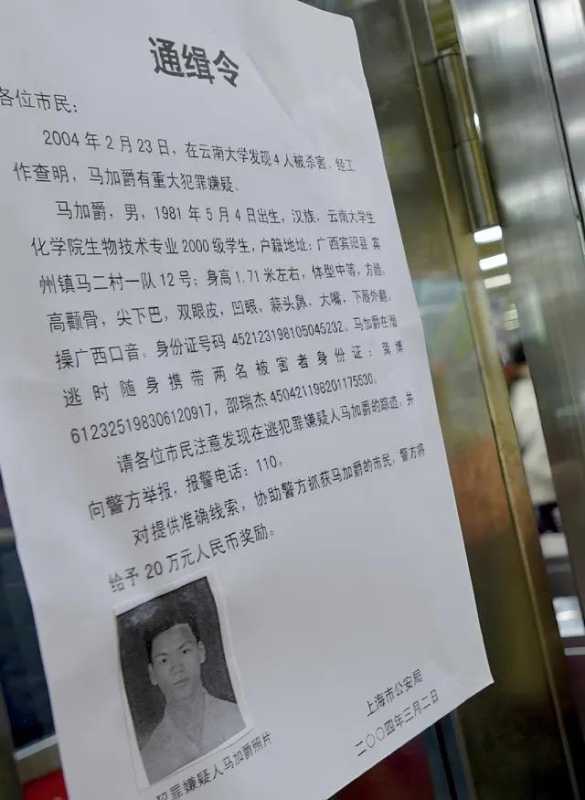 通缉令
各位市民：
2004年2月23日，在云南大学发现4人被杀害。经工
作查明，马加爵有重大犯罪嫌疑。
马加爵，男，1981年5月4日出生，汉族，云南大学生
化学院生物技术专业2000级学生，户籍地址：广西宾阳县宾
州镇马二村一队12号；身高1.71米左右，体型中等，方脸，
高颧骨，尖下巴，双眼皮，凹眼，蒜头鼻，大嘴，下唇外翻，
操广西口音。身份证号码452123198105045232。马加爵在潜
逃时随身携带两名被害者身份证：龚博
612325198306120917，邵瑞杰450421198201175530。
请各位市民注意发现在逃犯罪嫌疑人马加爵的踪迹，并
向警方举报，报警电话：110。
对提供准确线索，协助警方抓获马加爵的市民，警方将
给予20万元人民币奖励。
犯罪嫌疑人马加爵照片
上海市公安局
二〇〇四年三月二日